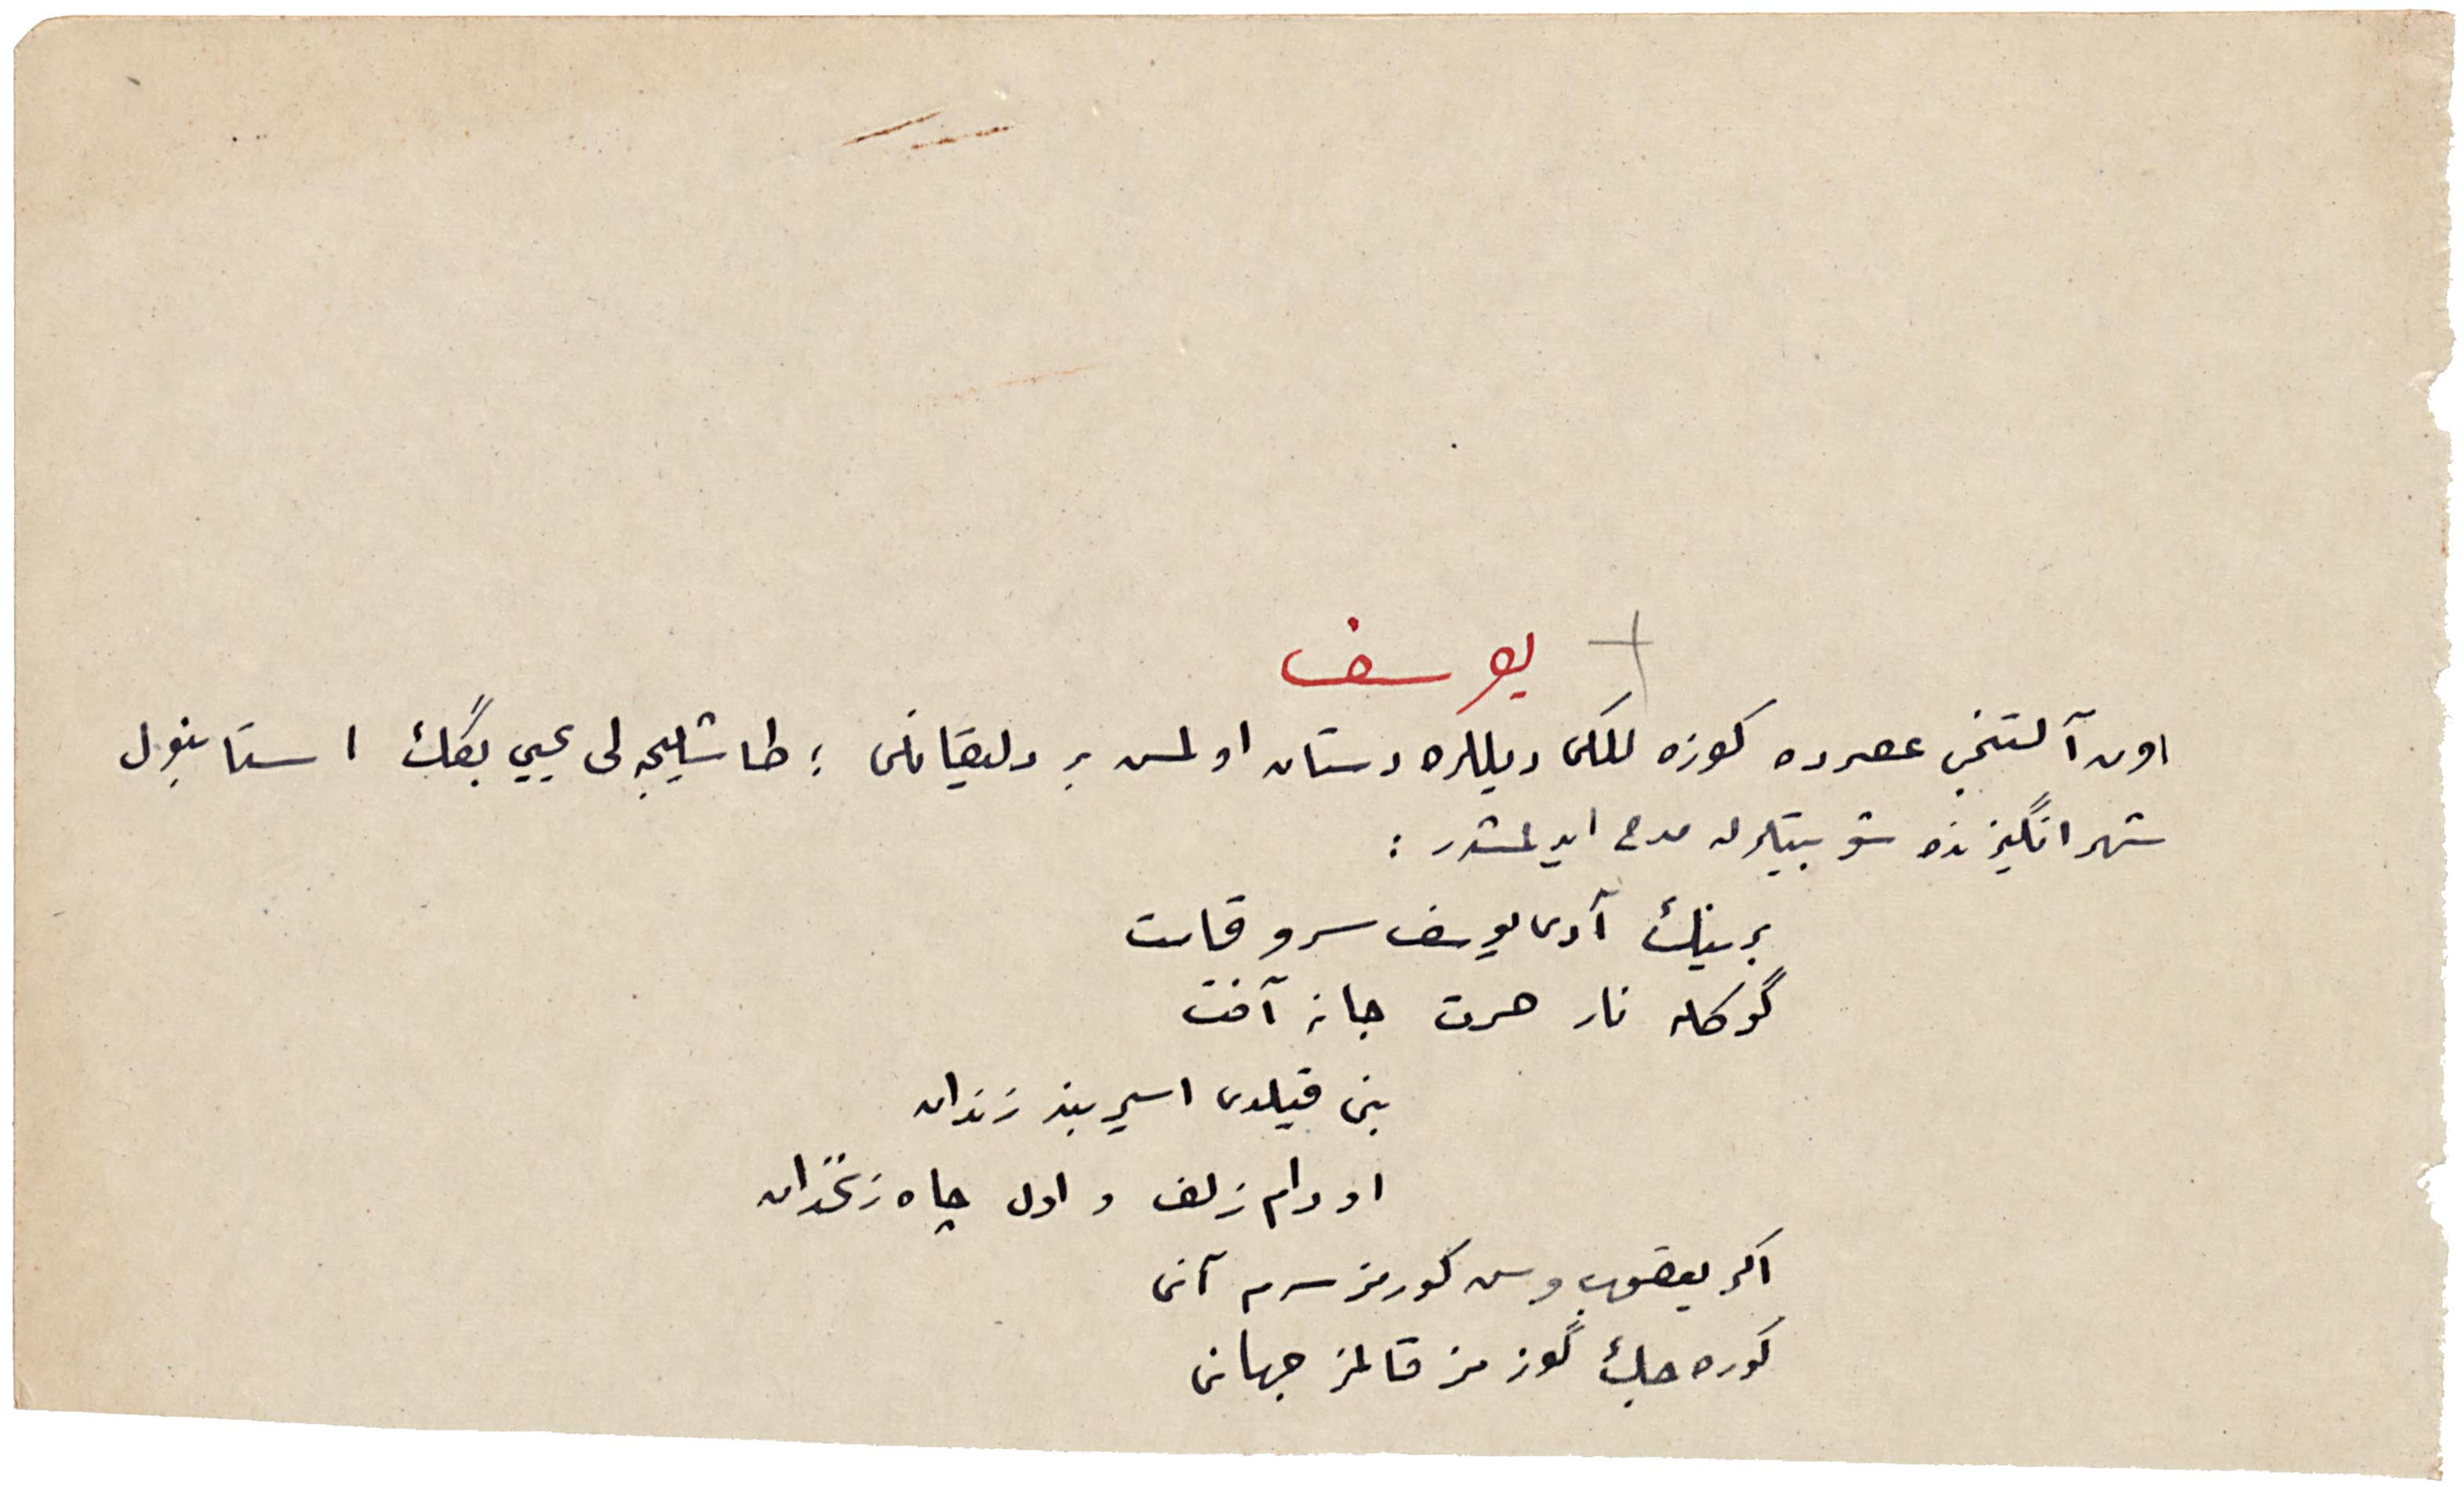 يوسف
اون آلتنجی عصرده كوزه للكی ديللره دستان اولمش بر دليقانلی ؛ طاشليجه لی يحيی بگڭ استانبول
شهرانگيزنده شو بيتلرله مدح ايدلمشدر :
برينڭ آدی يوسف سرو قامت
گوكله نار حسرت جانه آفت
بنی قيلدی اسير بند زندان
او دام زلف و اول چاه زنخدان
اكر يعقوب وش كورمزسم آنی
كوره جڭ گوزمز قالمز جهانی